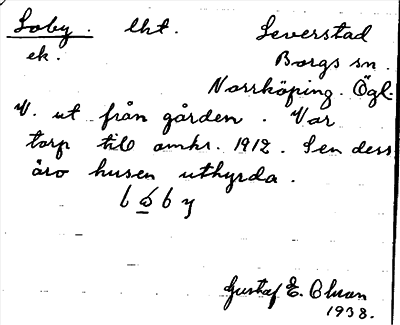 Loby. lht. Leverstad
ek. Borgs sn.
Norrköping. Ögl.
V. ut från gården. Var
torp till omkr. 1912. Sen dess
äro husen uthyrda.
Gustaf E. Olson
1938.